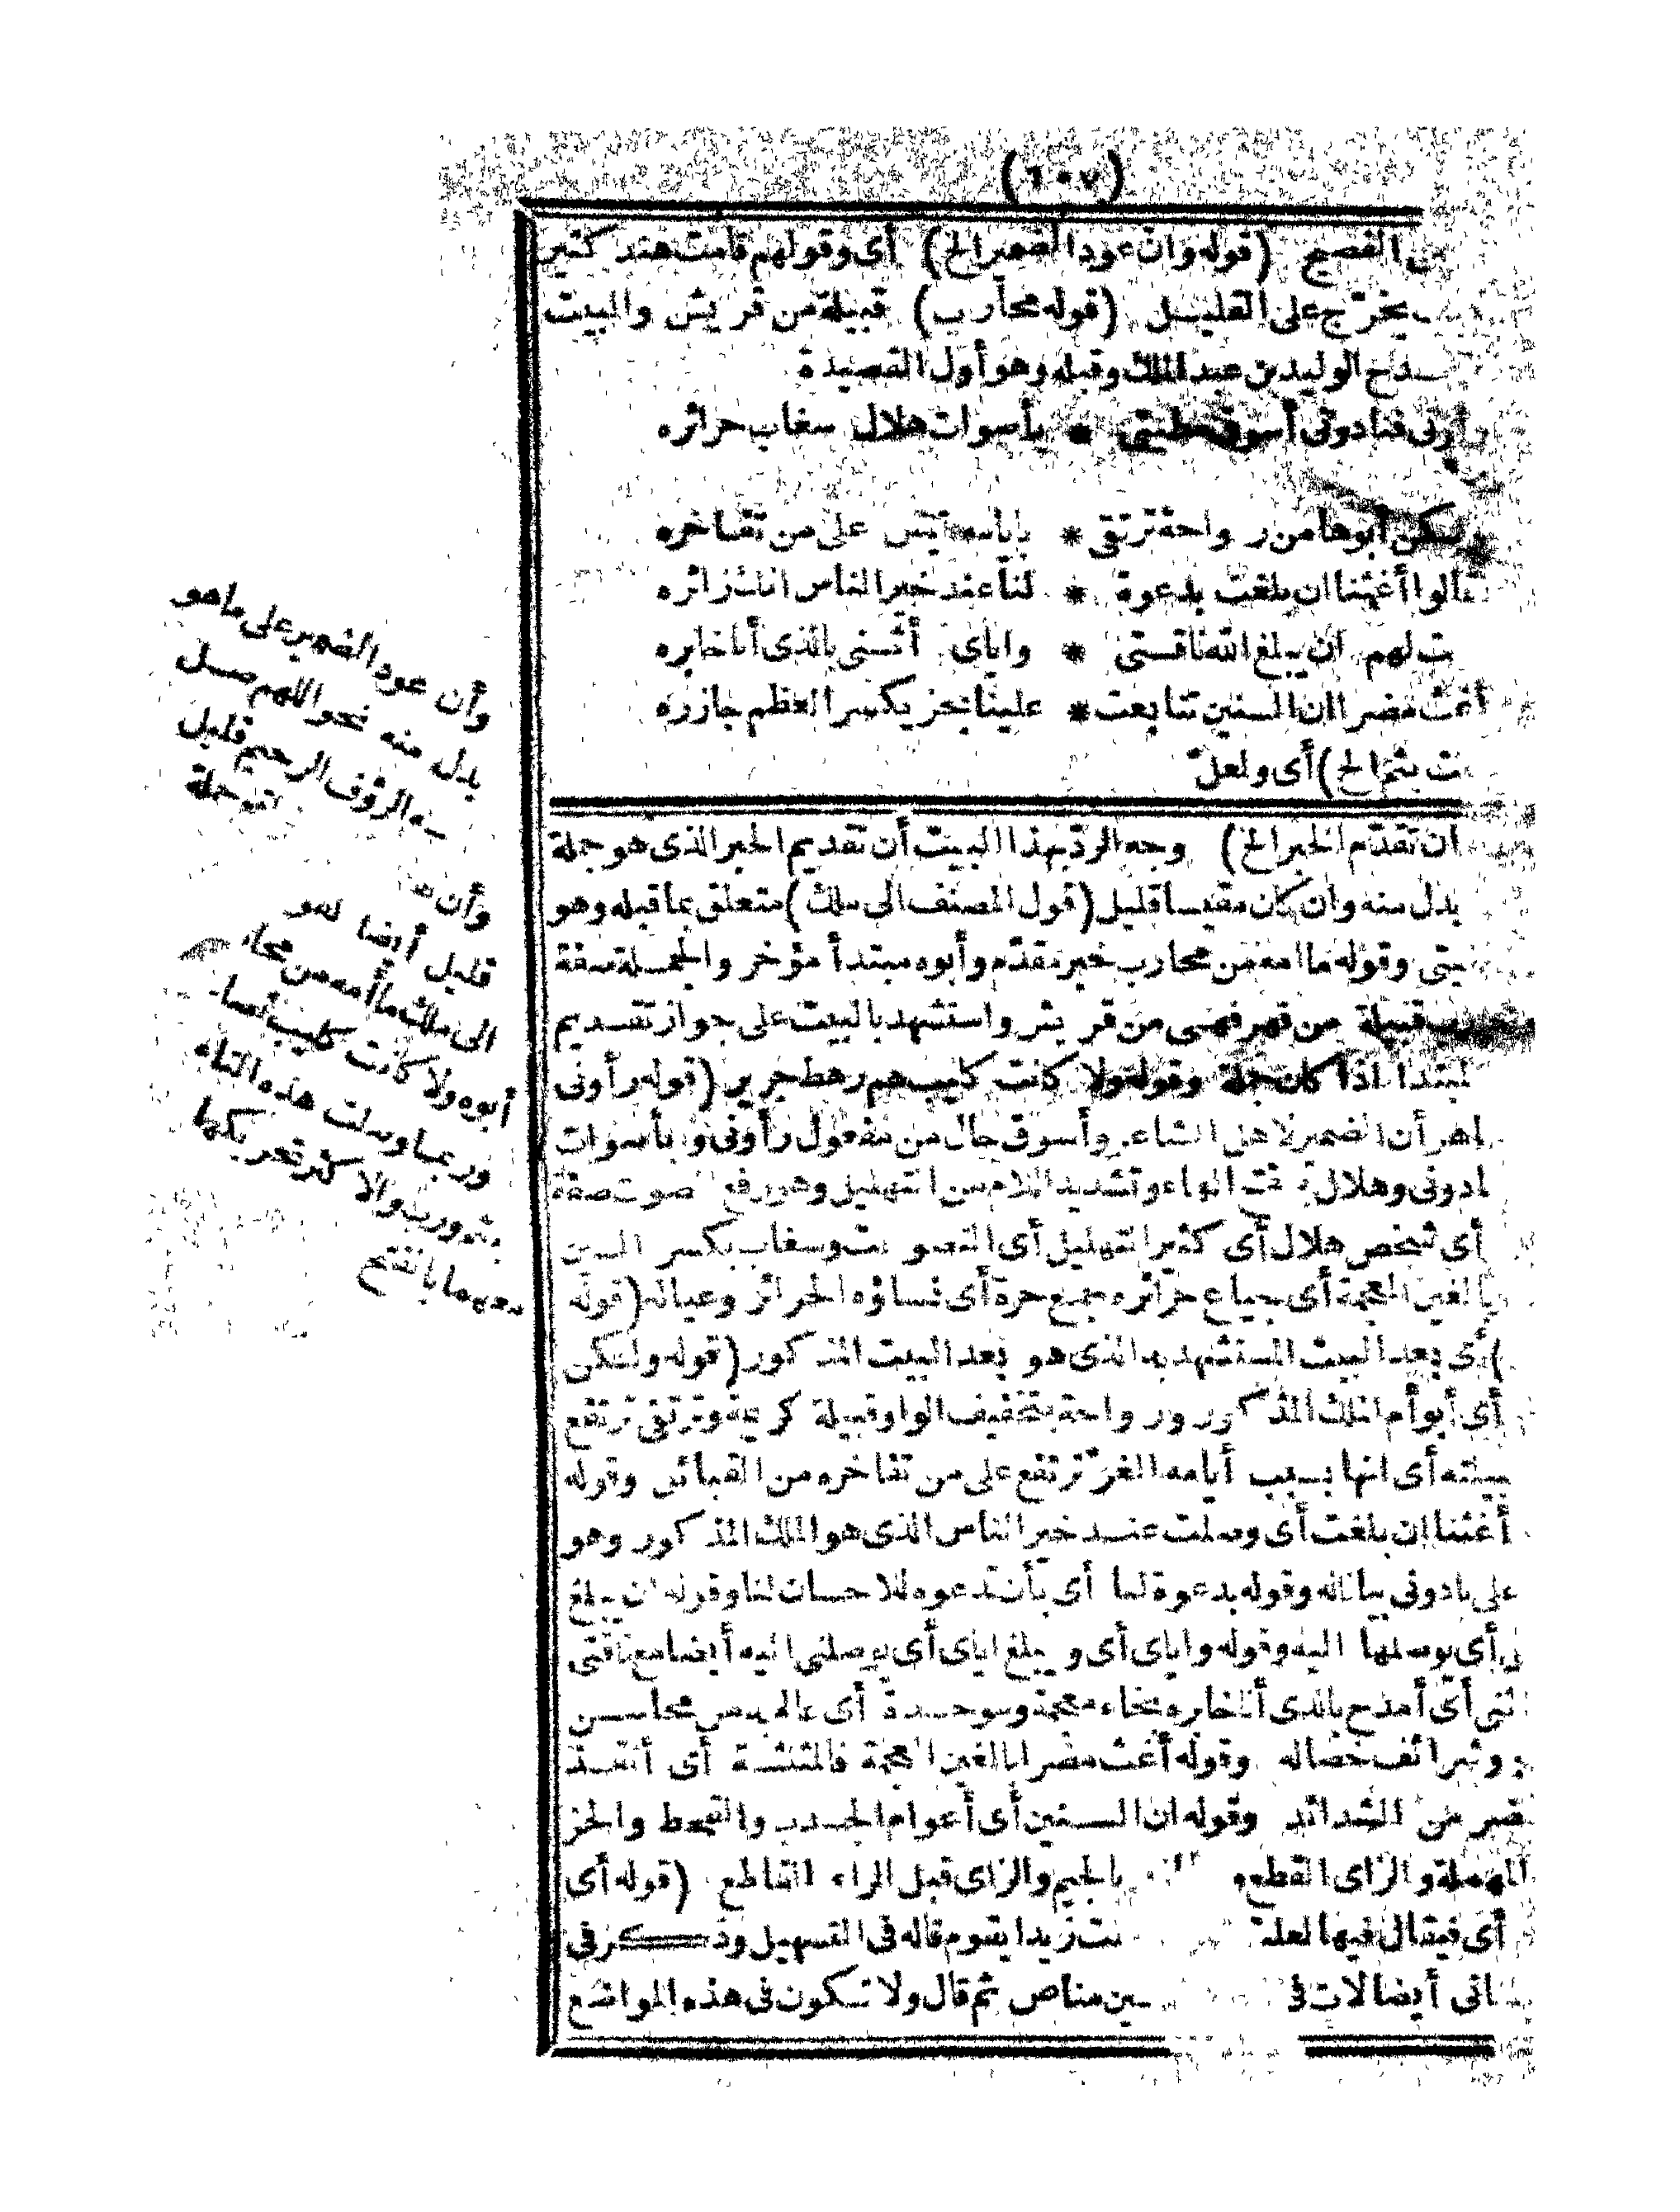 (١٠٧)
الفصيح (قوله وان عود الضمير الخ) أى وقولهم قامت هند كثير
يخرّج على القليل (قوله محارب) قبيلة من قريش والبيت
الوليد بن عبد الملك وقبله وهو أول القصيدة
رأونى فنادونى أسوق مطيتى * بأصوات هلال سغاب حرائره
أبوها من رواحة ترتقى * بأيامه قيس على من تفاخره
قالوا أغثنا ان بلغت بدعوة * لنا عند خير الناس انك زائره
لهم ان يبلغ الله ناقتى * واياى أثنى بالذى أنا خابره
أغث مضرا ان السنين تتابعت * علينا بحز يكسر العظم جازره
الخ) أى ولعل
ان تقدّم الخبر الخ) وجه الرد بهذا البيت أن تقديم الخبر الذى هو جملة
بدل منه وان كان مقيسا قليل (قول المصنف الى ملك) متعلق بما قبله وهو
وقوله ما امه من محارب خبر مقدّم وأبوه مبتدأ مؤخر والجملة صفة
قبيلة من فهر فهى من قريش واستشهد بالبيت على جواز تقديم
اذا كان جملة وقوله ولا كانت كليب هم رهط جرير (قوله رأونى
أن الضمير لاهل الشاعر وأسوق حال من مفعول رأونى وبأصوات
وهلال الهاء وتشديد اللام من التهليل وهو رفع الصوت صفة
أى شخص هلال أى كثير التهليل أى التصويت وسغاب بكسر السين
بالغين المعجمة أى جياع حرائره جمع حرة أى نساؤه الحرائر وعياله (قوله
) أى بعد البيت المستشهد به الذى هو بعد البيت المذكور (قوله ولكن
أى أبو أم الملك المذكور ورواحة بتخفيف الواو قبيلة كريمة وترتقى ترتفع
أى انها بسبب أيامه الغرّ ترتفع على من تفاخره من القبائل وقوله
أغثنا ان بلغت أى وصلت عند خير الناس الذى هو الملك المذكور وهو
على وقوله بدعوة لنا أى بأن تدعوه للاحسان لنا وقوله ان يبلغ
أى يوصلها اليه وقوله واياى أى ويبلغ اياى أى يوصلنى اليه أيضا مع ناقتى
أى أمدح بالذى أنا خابره بخاء معجمة وموحدة أى عالم به من محاسن
وشرائف خصاله وقوله أغث مضرا بالغين المعجمة فالمثلثة أى أنقذ
من الشدائد وقوله ان السنين أى أعوام الجدب والقحط والحز
المهملة والزاى القطع بالجيم والزاى قبل الراء القاطع (قوله أى
أى فيقال فيها لعلت زيدا يقوم قاله فى التسهيل وذكر فى
أيضا لات مناص ثم قال ولا تكون فى هذه المواضع
وأن عود الضمير على ما هو
بدل منه نحو اللهم صل
الرؤف الرحيم قليل
وأن
قليل أيضا
الى ملك ما أمه من
أبوه ولا كانت كليب
وربما وصلت هذه التاء
وربت والاكثر تحريكها
معهما بالفتح